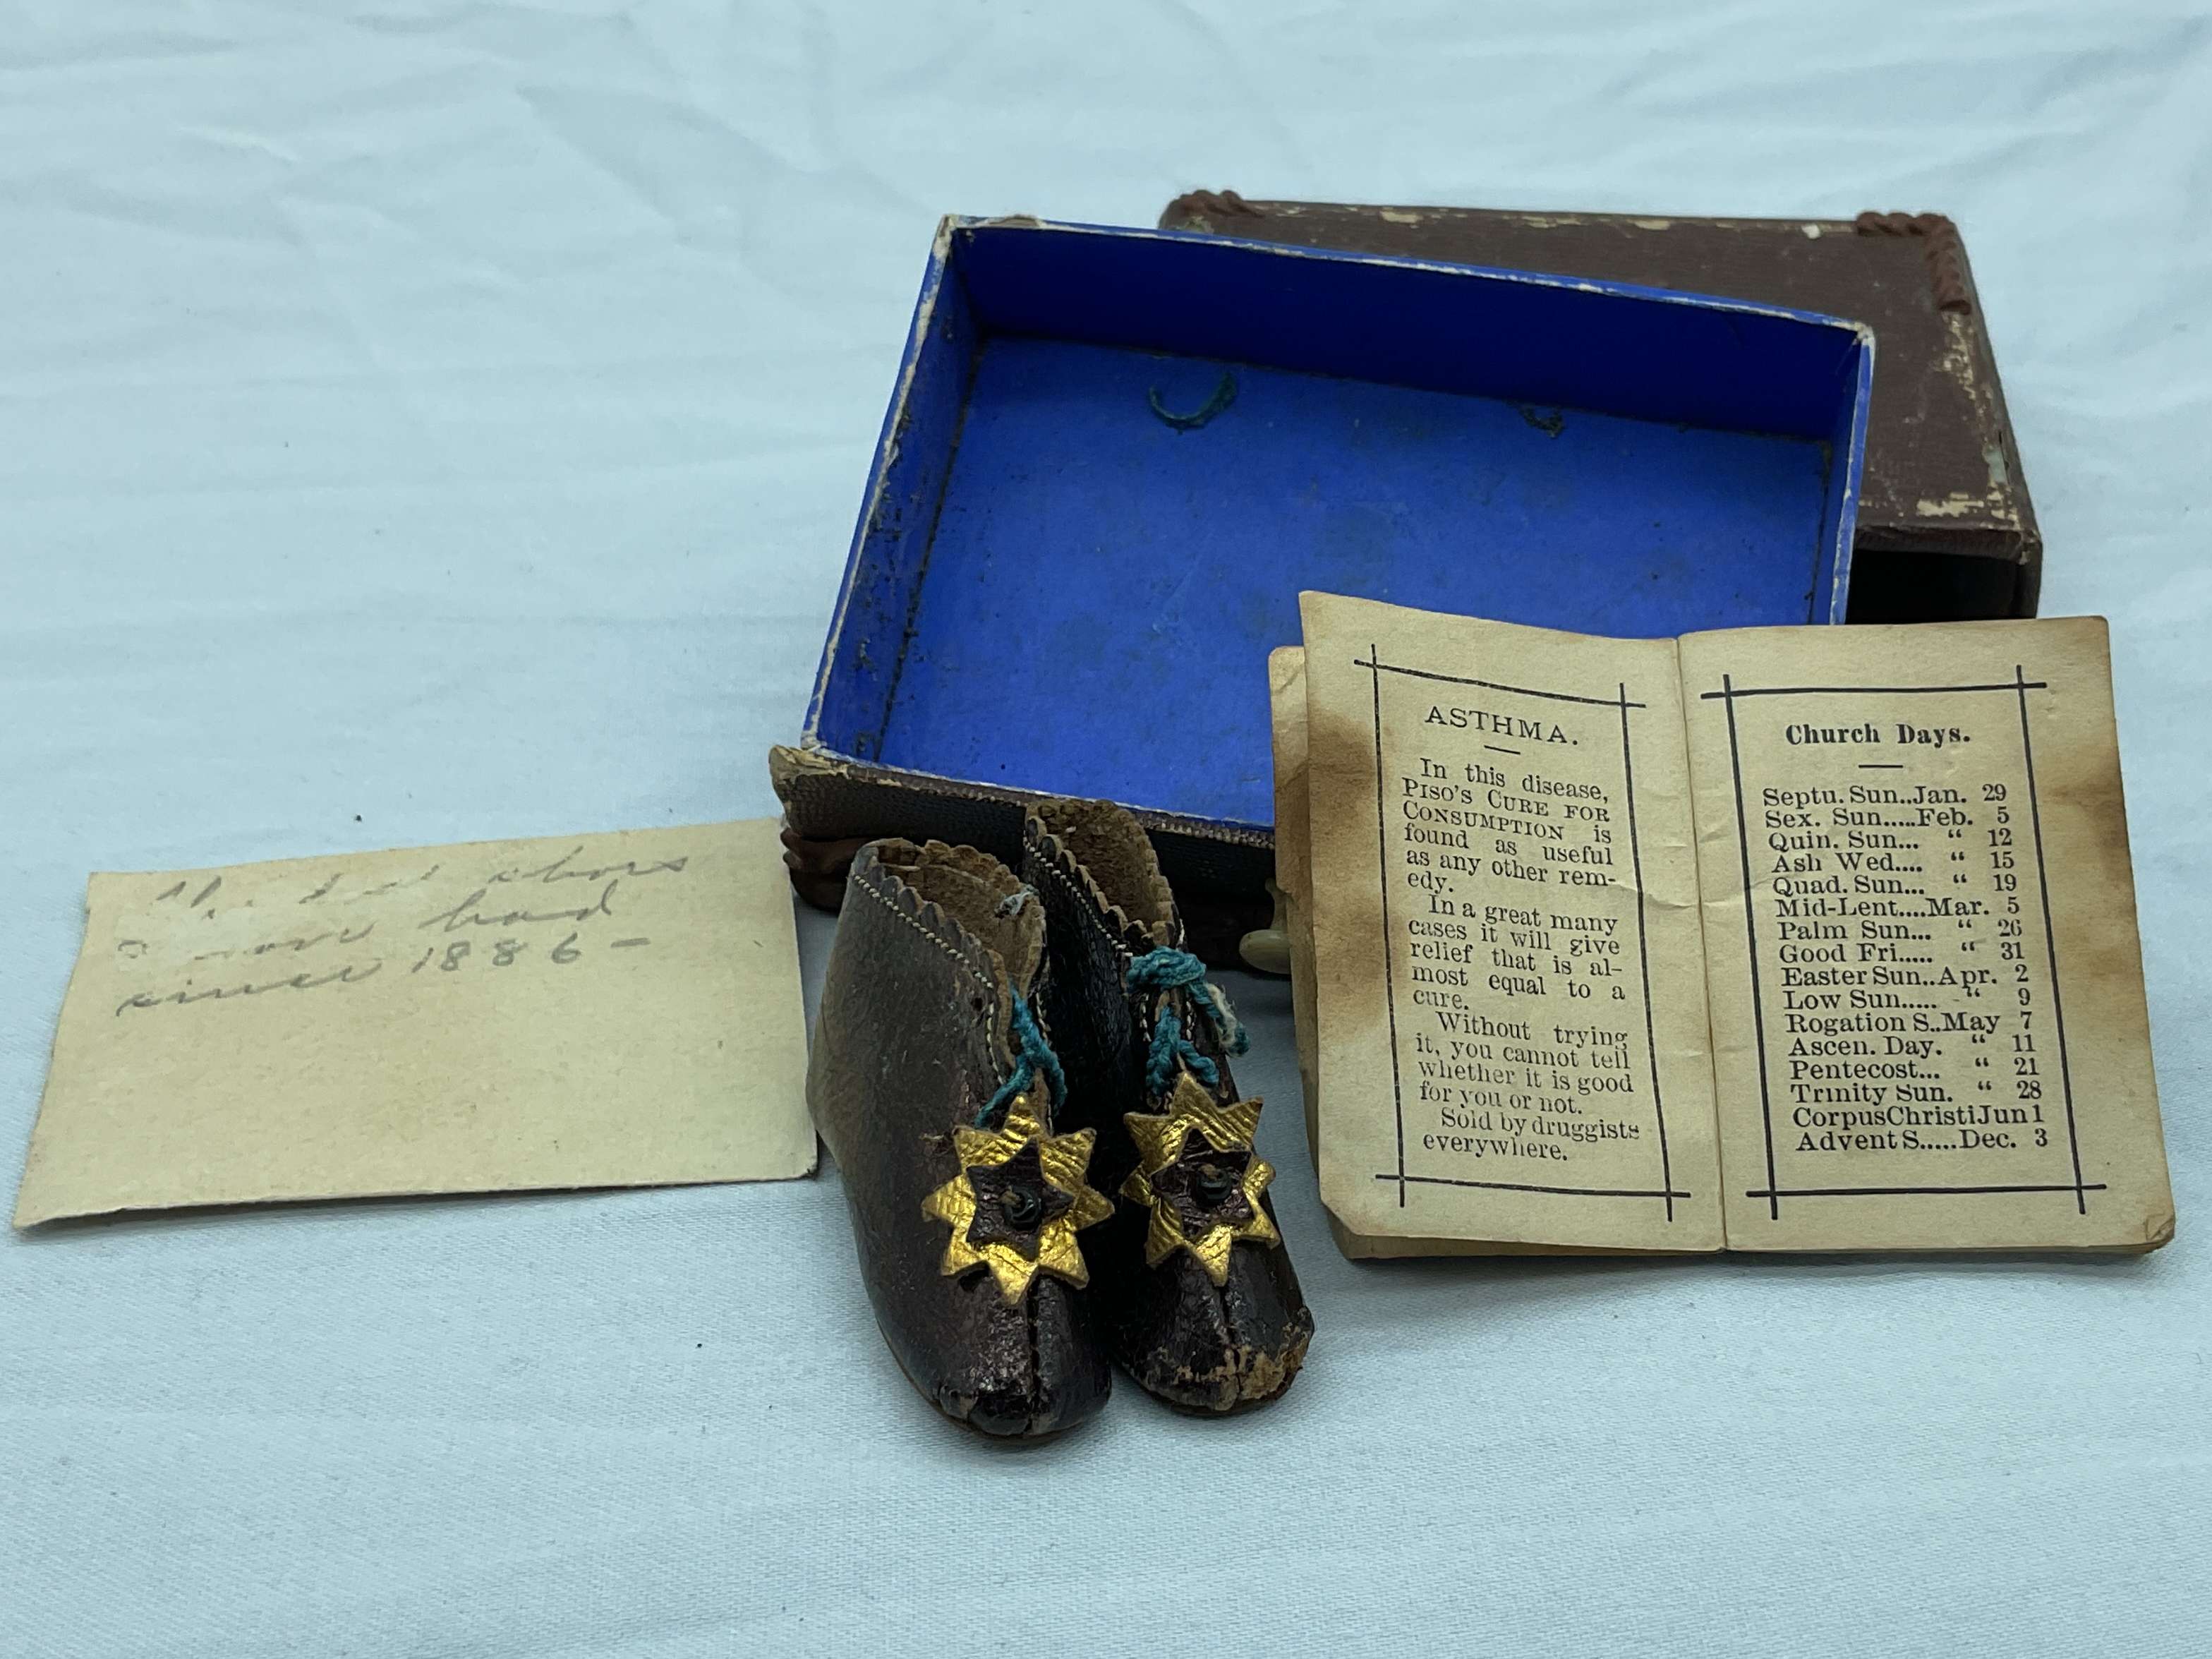 shoes
had
since 1886 –
ASTHMA.
In this disease,
PISO'S CURE FOR
CONSUMPTION is
found as useful
as any other rem-
edy.
In a great many
cases it will give
relief that is al-
most equal to a
cure.
Without trying
it, you cannot tell
whether it is good
for you or not.
Sold by druggists
everywhere.
Church Days.
Septu. Sun..Jan. 29
Sex. Sun.....Feb. 5
Quin. Sun... “ 12
Ash Wed.... “ 15
Quad. Sun... “ 19
Mid-Lent....Mar. 5
Palm Sun... “ 26
Good Fri..... “ 31
Easter Sun..Apr. 2
Low Sun..... “ 9
Rogation S..May 7
Ascen. Day. “ 11
Pentecost... “ 21
Trinity Sun. “ 28
CorpusChristiJun 1
Advent S.....Dec. 3